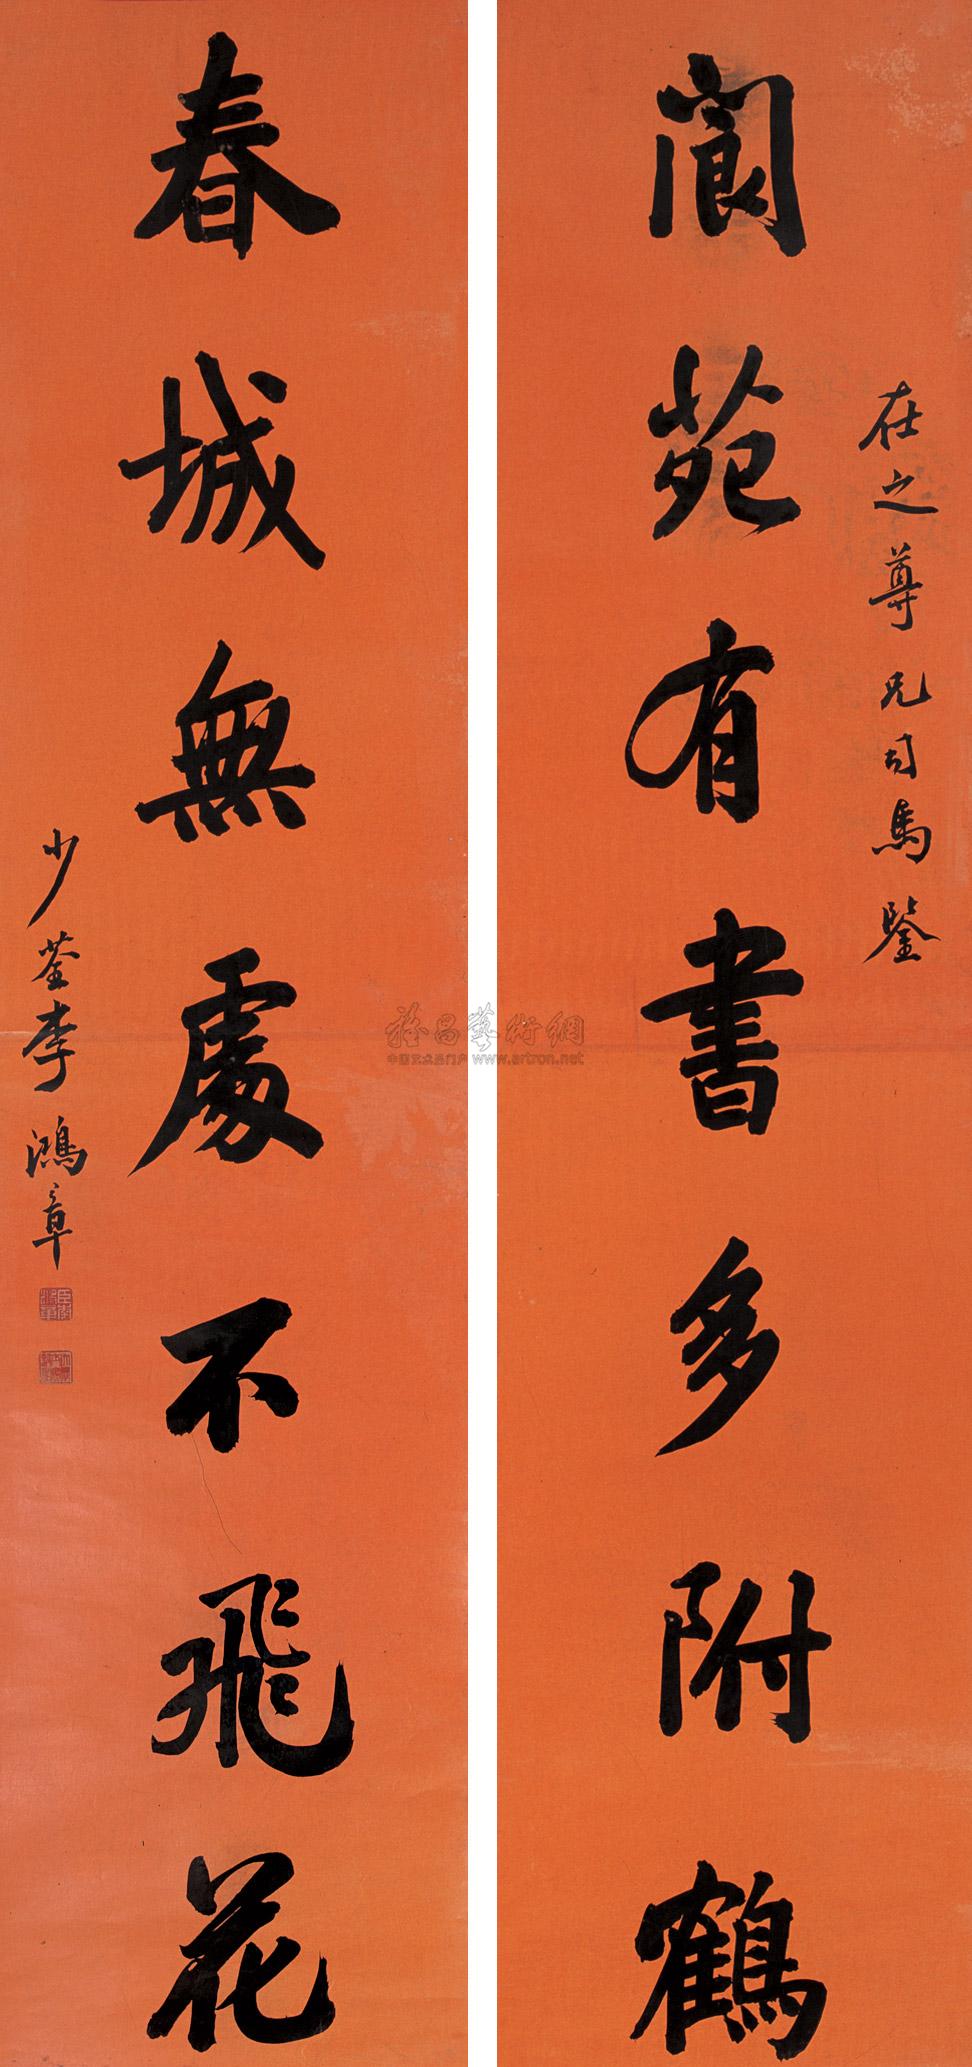 在之尊兄司馬鑒
閬苑有書多附鶴
春城無處不飛花
少荃李鴻章
雅昌藝術網
中国艺术品门户 www.artron.net